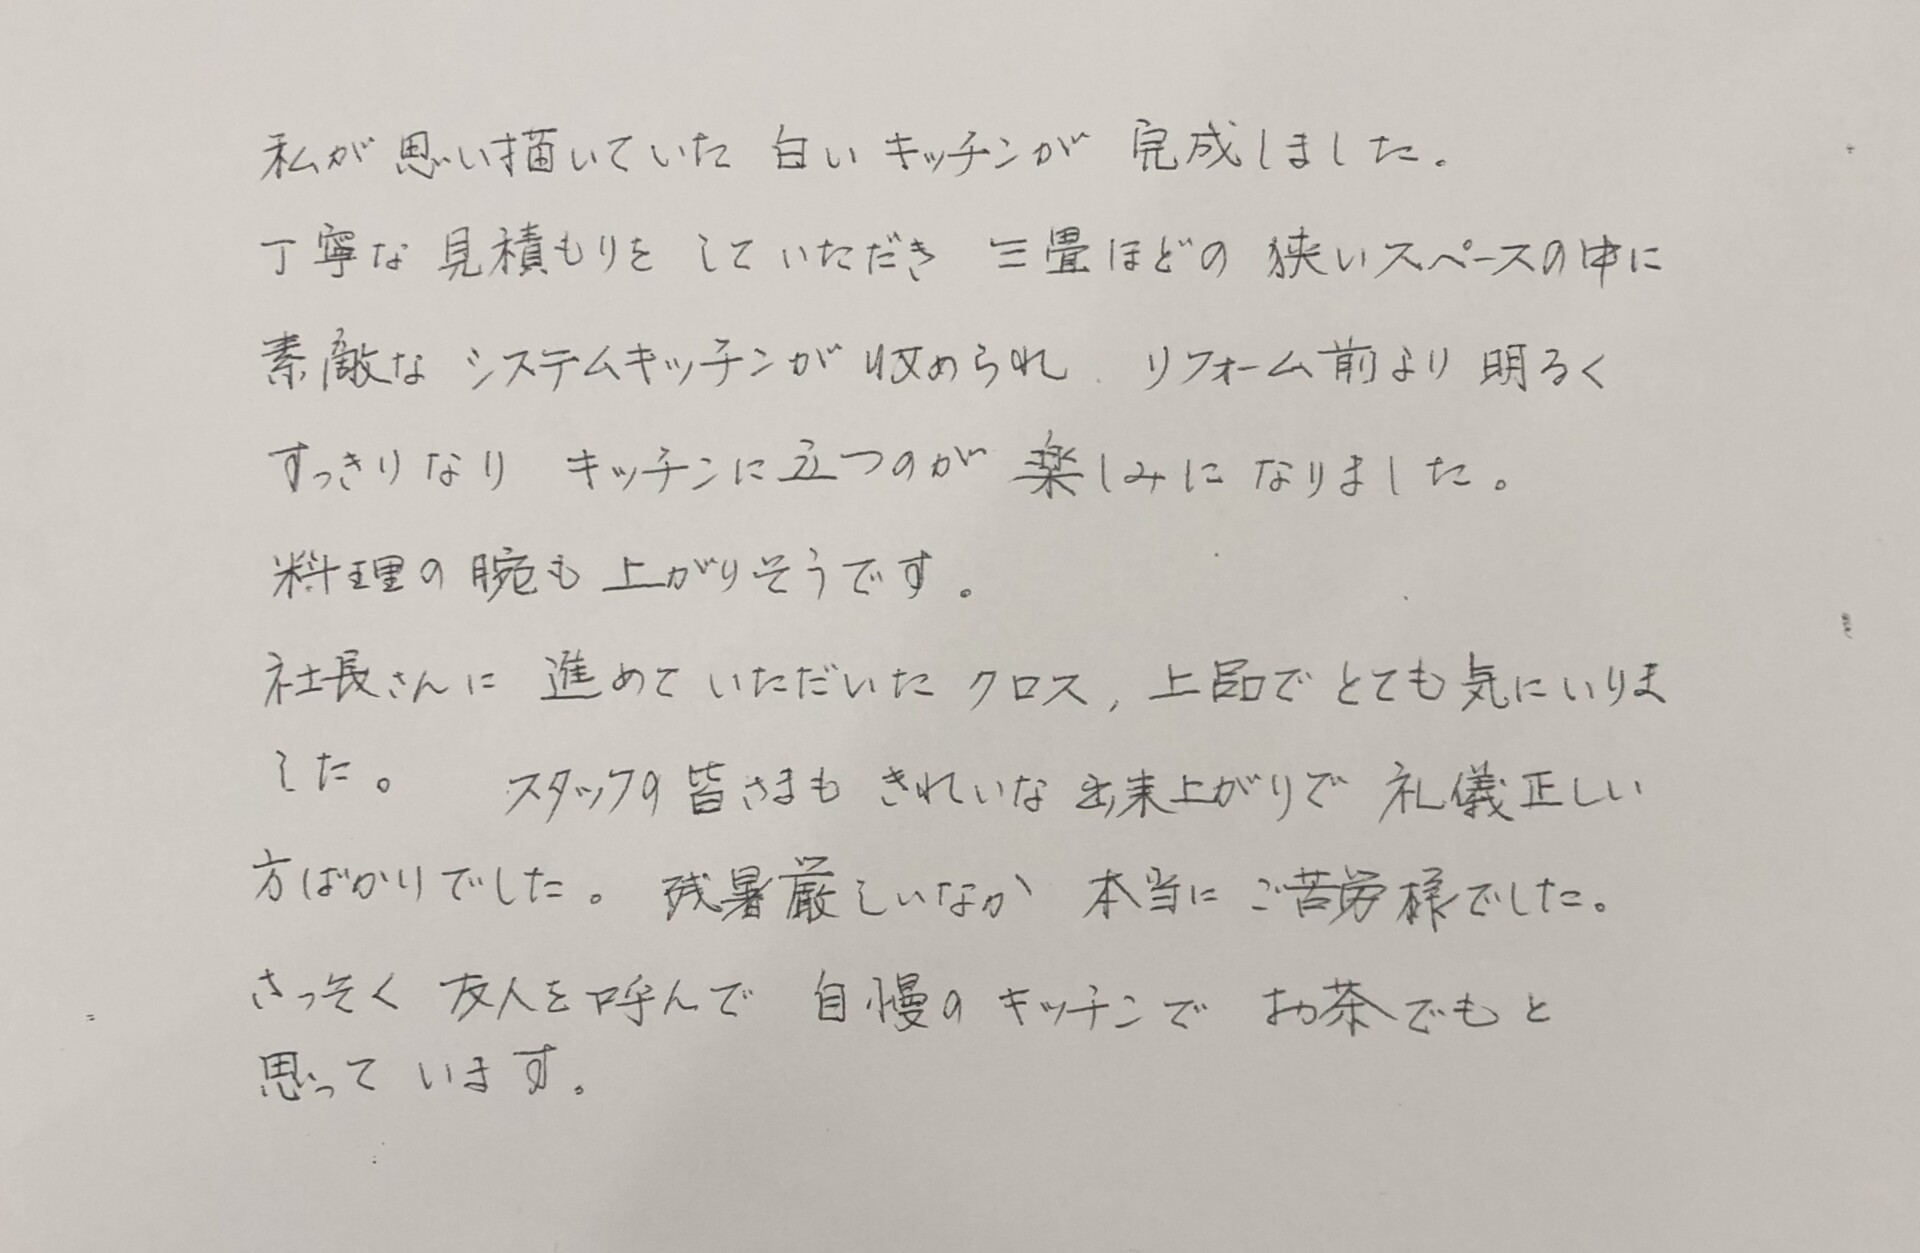 私が思い描いていた 白いキッチンが 完成しました。
丁寧な見積もりを していただき 三畳ほどの 狭いスペースの中に
素敵な システムキッチンが 収められ、リフォーム前より 明るく
すっきりなり キッチンに立つのが 楽しみに なりました。
料理の腕も 上がりそうです。
社長さんに 進めて いただいた クロス, 上品で とても気にいりま
した。 スタッフの皆さまも きれいな 出来上がりで 礼儀正しい
方ばかりでした。 残暑厳しいなか 本当に ご苦労様でした。
さっそく 友人を呼んで 自慢の キッチンで お茶でもと
思って います。